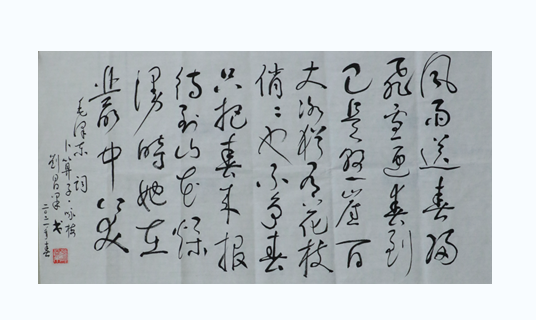 风雨送春归
飞雪迎春到
已是悬崖百
丈冰犹有花枝
俏俏也不争春
只把春来报
待到山花烂
漫时她在
丛中笑
毛泽东 词
卜算子·咏梅
刘昌 书
二〇二一年春